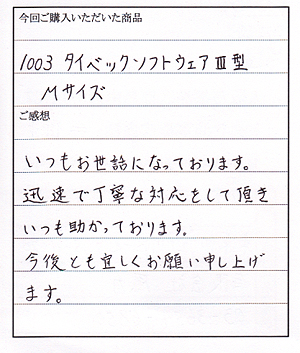 今回ご購入いただいた商品
1003 タイベックソフトウェアⅢ型
Mサイズ
ご感想
いつもお世話になっております。
迅速で丁寧な対応をして頂き
いつも助かっております。
今後とも宜しくお願い申し上げ
ます。